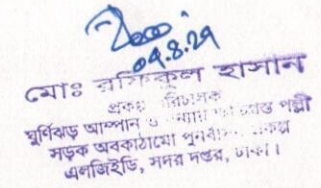 ০৭.৪.২১
মোঃ রফিকুল হাসান
প্রকল্প পরিচালক
ঘূর্ণিঝড় আম্পান ও বন্যায় ক্ষতিগ্রস্ত পল্লী
সড়ক অবকাঠামো পুনর্বাসন প্রকল্প
এলজিইডি, সদর দপ্তর, ঢাকা।